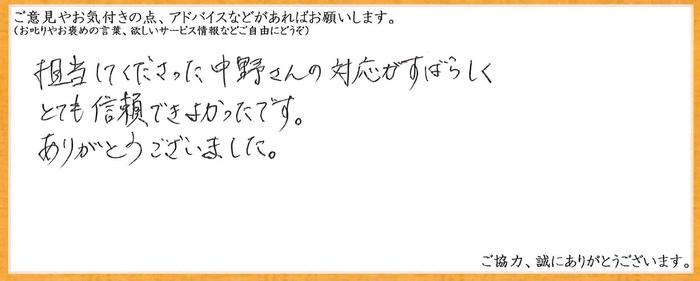 ご意見やお気付きの点、アドバイスなどがあればお願いします。
（お叱りやお褒めの言葉、欲しいサービス情報などご自由にどうぞ）
担当してくださった中野さんの対応がすばらしく
とても信頼できよかったです。
ありがとうございました。
ご協力、誠にありがとうございます。